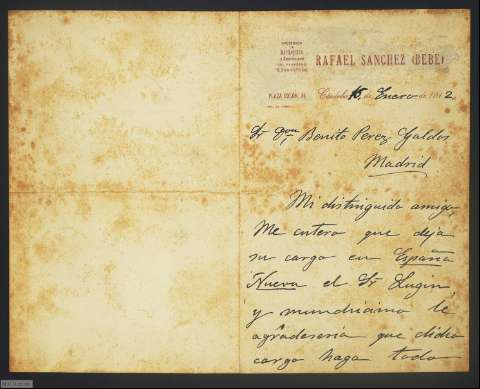 RAFAEL SANCHEZ (BEBÉ)
PLAZA COLÓN, 34
Córdoba 16 de Enero de 1912
Sr Don Benito Perez Galdos
Madrid
Mi distinguido amigo,
Me entero que deja
su cargo en España
Nueva el Sr
y muchísimo le
agradeseria que dicho
cargo haga todo